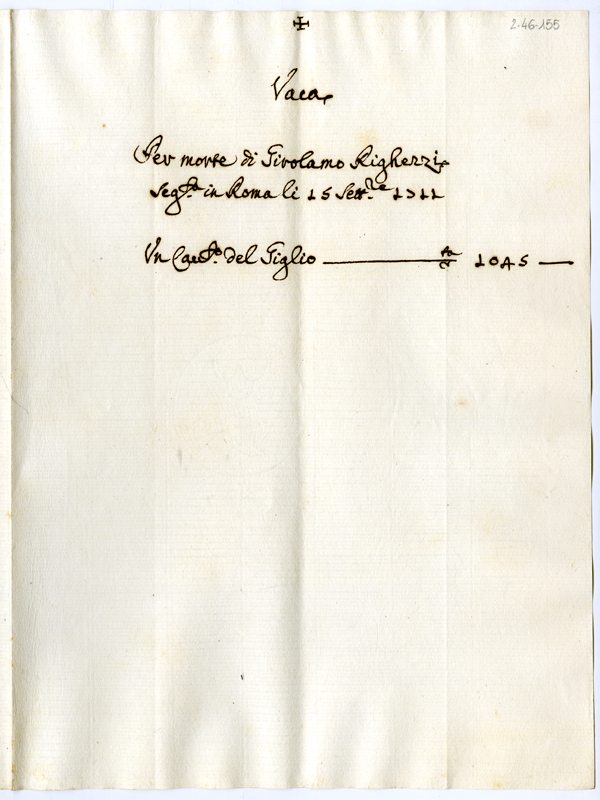 ✠
2-46-155
Vaca
Per morte di Girolamo Righezzi
Seg.ta in Roma li 15 Sett.re 1711
Un Cau.to del Giglio ——— 1045 —